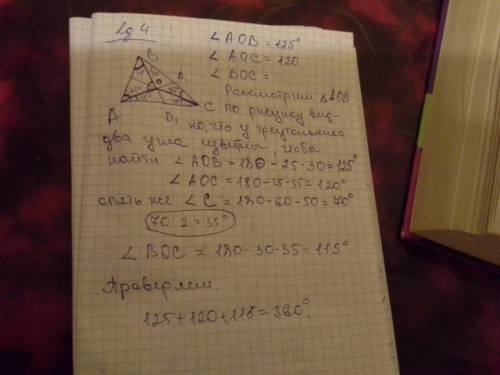 ∠AOB = 125°
∠AOC = 120
∠BOC =
B
O
A₁
A
B₁
C
Рассмотрим ΔAOB
по рисунку вид-
но, что у треугольника
два угла , чтобы
найти ∠AOB = 180 - 25 - 30 = 125°
∠AOC = 180 - 25 - 35 = 120°
опять же ∠C = 180 - 60 - 50 = 70°
70 : 2 = 35°
∠BOC = 180 - 30 - 35 = 115°
Праверяем.
125 + 120 + 115 = 360°.